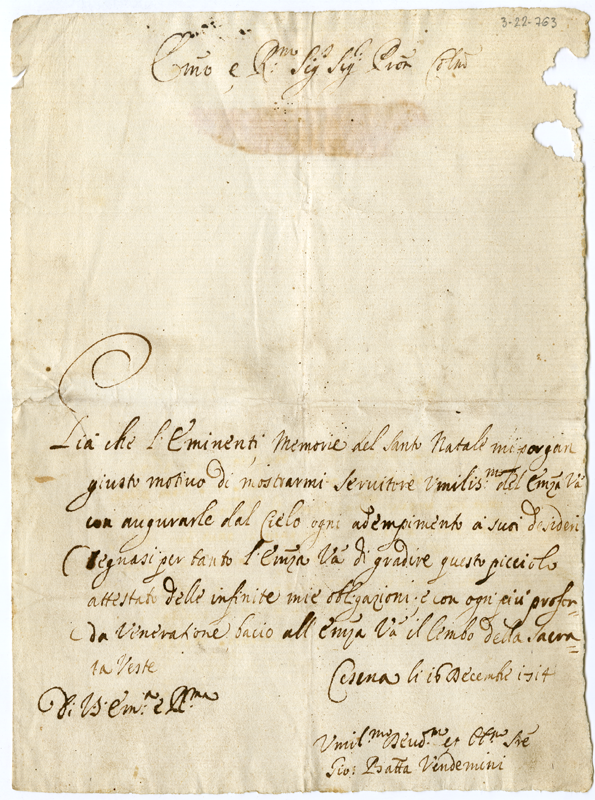 3-22-763
Emo e R.mo Sig.r Sig.r Pron Colmo
Già che l'Eminenti Memorie del Santo Natale mi porgan
giusto motivo di mostrarmi Servitore Umilis.mo del Emza Va
con augurarle dal Cielo ogni adempimento a suoi desideri
Degnasi per tanto l'Emza Va di gradire questo picciolo
attestato delle infinite mie obligazioni, e con ogni più profon-
da Veneratione bacio all'Emza Va il lembo della Sacra-
ta Veste
Cesena li 16 Decembe 1714
Di V. Em.a e R.ma
Umil.mo Deud.mo et Obl.mo Sre
Gio: Batta Vendemini